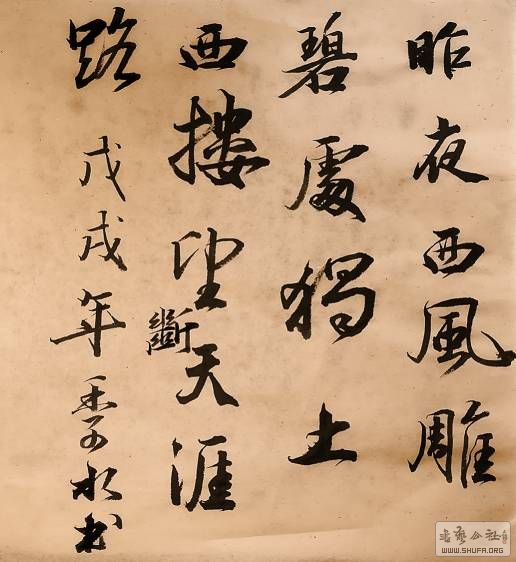 昨夜西風雕
碧處獨上
西樓望斷天涯
路 戊戌年水书
書藝公社
WWW.SHUFA.ORG